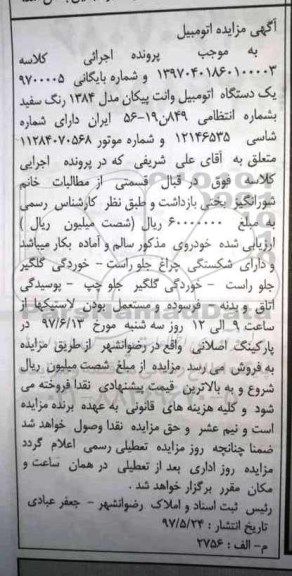 آگهی مزایده اتومبیل
به موجب پرونده اجرائی کلاسه
۱۳۹۷۰۴۰۱۸۶۰۱۰۰۰۰۳ و شماره بایگانی ۹۷۰۰۰۰۵
یک دستگاه اتومبیل وانت پیکان مدل ۱۳۸۴ رنگ سفید
بشماره انتظامی ۸۴۹ن۱۹-۵۶ ایران دارای شماره
شاسی ۱۲۱۴۶۵۳۵ و شماره موتور ۱۱۲۸۴۰۷۰۵۶۸
متعلق به آقای علی شریفی که در پرونده اجرایی
کلاسه فوق در قبال قسمتی از مطالبات خانم
شورانگیز بحنی بازداشت و طبق نظر کارشناس رسمی
به مبلغ ۶۰۰۰۰۰۰۰ ریال (شصت میلیون ریال )
ارزیابی شده خودروی مذکور سالم و آماده بکار میباشد
و دارای شکستگی چراغ جلو راست - خوردگی گلگیر
جلو راست - خوردگی گلگیر جلو چپ - پوسیدگی
اتاق و بدنه - فرسوده و مستعمل بودن لاستیکها از
ساعت ۹ الی ۱۲ روز سه شنبه مورخ ۹۷/۶/۱۳ در
پارکینگ اصلانی واقع در رضوانشهر از طریق مزایده
به فروش می رسد مزایده از مبلغ شصت میلیون ریال
شروع و به بالاترین قیمت پیشنهادی نقدا فروخته می
شود و کلیه هزینه های قانونی به عهده برنده مزایده
است و نیم عشر و حق مزایده نقدا وصول خواهد شد
ضمنا چنانچه روز مزایده تعطیلی رسمی اعلام گردد
مزایده روز اداری بعد از تعطیلی در همان ساعت و
مکان مقرر برگزار خواهد شد .
رئیس ثبت اسناد و املاک رضوانشهر - جعفر عبادی
تاریخ انتشار : ۹۷/۵/۲۴
م- الف : ۲۷۵۶